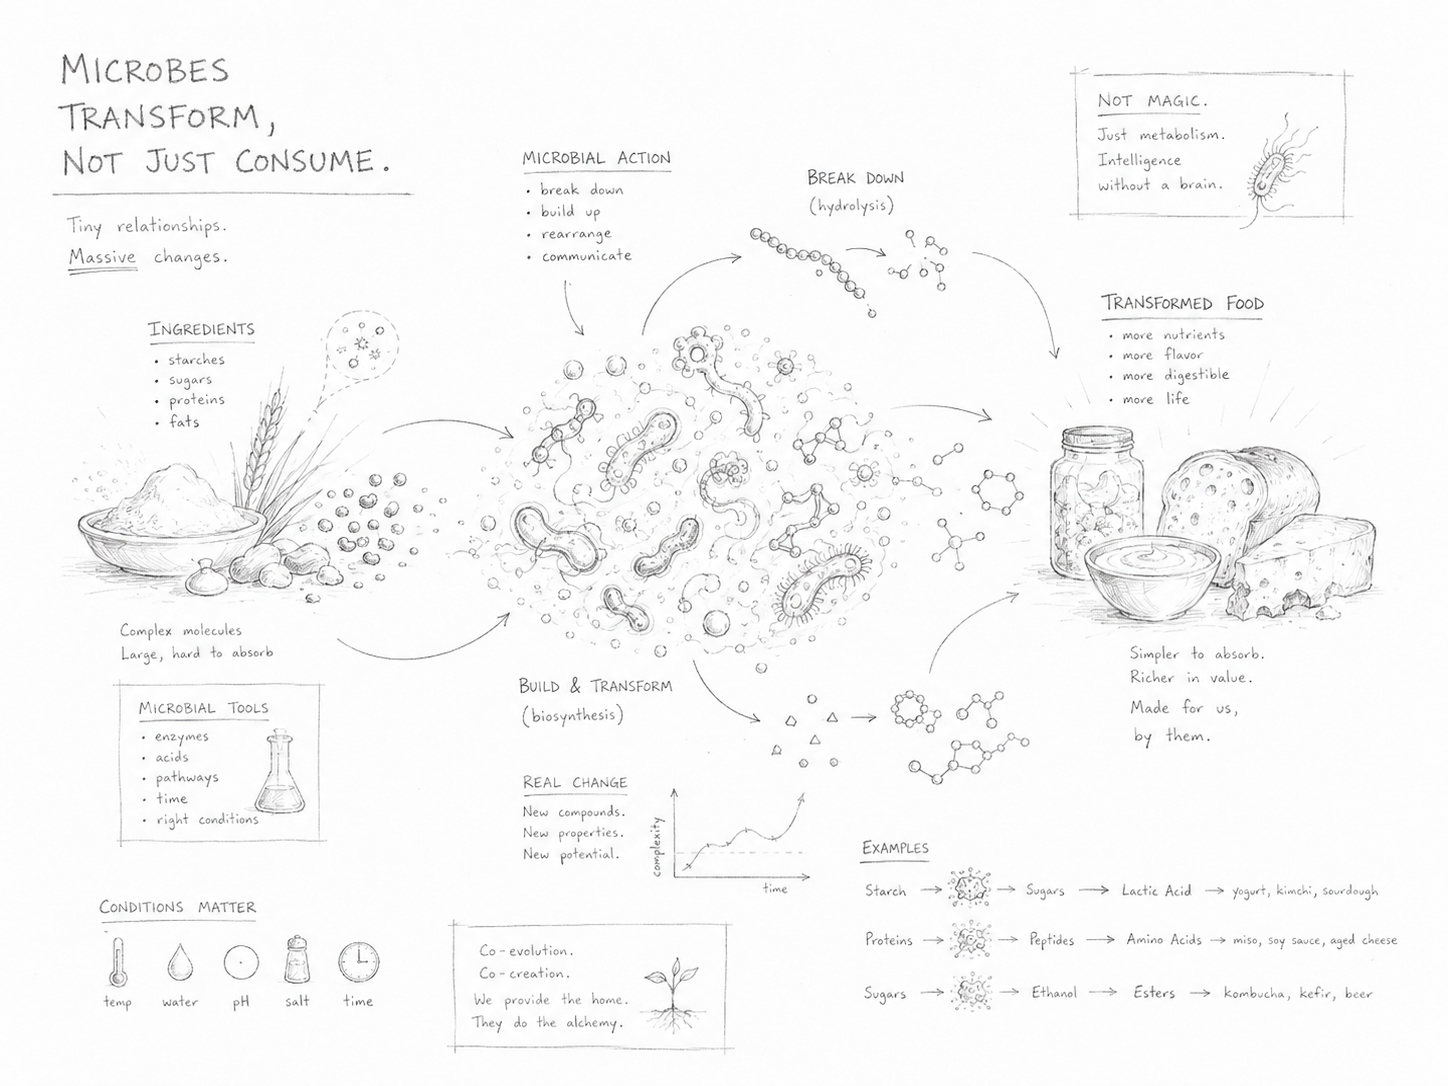 MICROBES
TRANSFORM,
NOT JUST CONSUME.
Tiny relationships.
Massive changes.
INGREDIENTS
• starches
• sugars
• proteins
• fats
Complex molecules
Large, hard to absorb
MICROBIAL TOOLS
• enzymes
• acids
• pathways
• time
• right conditions
CONDITIONS MATTER
temp
water
pH
salt
time
MICROBIAL ACTION
• break down
• build up
• rearrange
• communicate
BREAK DOWN
(hydrolysis)
BUILD & TRANSFORM
(biosynthesis)
REAL CHANGE
New compounds.
New properties.
New potential.
complexity
time
Co-evolution.
Co-creation.
We provide the home.
They do the alchemy.
NOT MAGIC.
Just metabolism.
Intelligence
without a brain.
TRANSFORMED FOOD
• more nutrients
• more flavor
• more digestible
• more life
Simpler to absorb.
Richer in value.
Made for us,
by them.
EXAMPLES
Starch → → Sugars → Lactic Acid → yogurt, kimchi, sourdough
Proteins → → Peptides → Amino Acids → miso, soy sauce, aged cheese
Sugars → → Ethanol → Esters → kombucha, kefir, beer